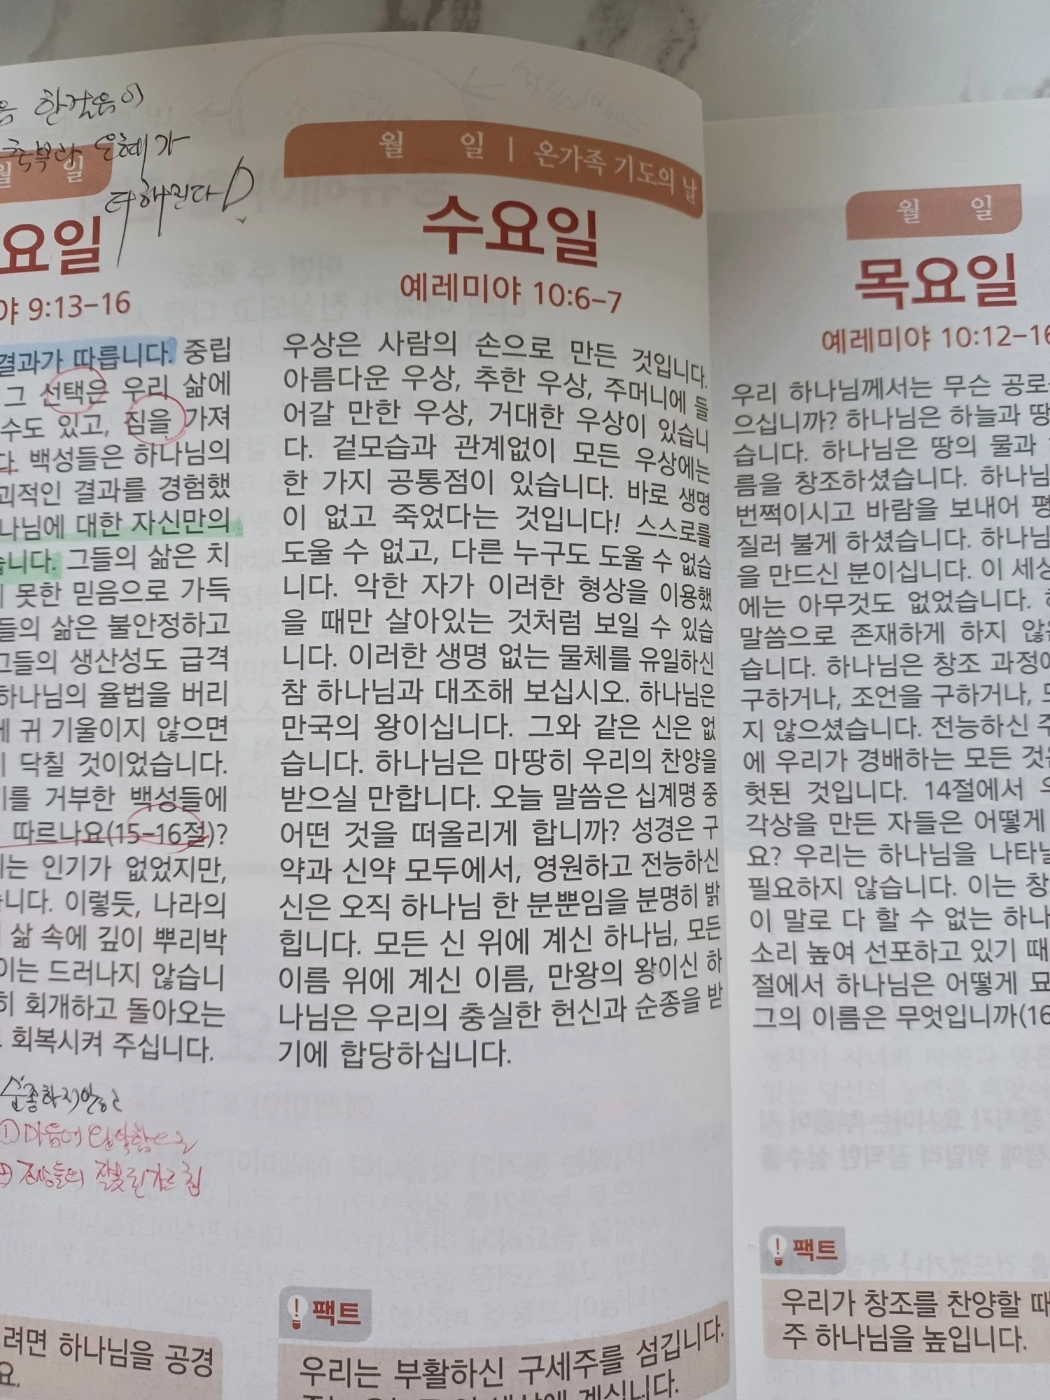 한걸음이
은혜가
더해진다
월 일
요일
야 9:13–16
결과가 따릅니다. 중립
그 선택은 우리 삶에
수도 있고, 짐을 가져
다. 백성들은 하나님의
괴적인 결과를 경험했
나님에 대한 자신만의
습니다. 그들의 삶은 치
못한 믿음으로 가득
들의 삶은 불안정하고
그들의 생산성도 급격
하나님의 율법을 버리
귀 기울이지 않으면
닥칠 것이었습니다.
를 거부한 백성들에
따르나요(15–16절)?
는 인기가 없었지만,
니다. 이렇듯, 나라의
삶 속에 깊이 뿌리박
이는 드러나지 않습니
히 회개하고 돌아오는
회복시켜 주십니다.
순종하지않고
려면 하나님을 공경
요.
월 일 | 온가족 기도의 날
수요일
예레미야 10:6–7
우상은 사람의 손으로 만든 것입니다.
아름다운 우상, 추한 우상, 주머니에 들
어갈 만한 우상, 거대한 우상이 있습니
다. 겉모습과 관계없이 모든 우상에는
한 가지 공통점이 있습니다. 바로 생명
이 없고 죽었다는 것입니다! 스스로를
도울 수 없고, 다른 누구도 도울 수 없습
니다. 악한 자가 이러한 형상을 이용했
을 때만 살아있는 것처럼 보일 수 있습
니다. 이러한 생명 없는 물체를 유일하신
참 하나님과 대조해 보십시오. 하나님은
만국의 왕이십니다. 그와 같은 신은 없
습니다. 하나님은 마땅히 우리의 찬양을
받으실 만합니다. 오늘 말씀은 십계명 중
어떤 것을 떠올리게 합니까? 성경은 구
약과 신약 모두에서, 영원하고 전능하신
신은 오직 하나님 한 분뿐임을 분명히 밝
힙니다. 모든 신 위에 계신 하나님, 모든
이름 위에 계신 이름, 만왕의 왕이신 하
나님은 우리의 충실한 헌신과 순종을 받
기에 합당하십니다.
팩트
우리는 부활하신 구세주를 섬깁니다.
계십니다.
월 일
목요일
예레미야 10:12–16
우리 하나님께서는 무슨 공로
으십니까? 하나님은 하늘과 땅
습니다. 하나님은 땅의 물과
름을 창조하셨습니다. 하나님
번쩍이시고 바람을 보내어
질러 불게 하셨습니다. 하나님
을 만드신 분이십니다. 이 세상
에는 아무것도 없었습니다.
말씀으로 존재하게 하지 않은
습니다. 하나님은 창조 과정에
구하거나, 조언을 구하거나,
지 않으셨습니다. 전능하신 주
에 우리가 경배하는 모든 것은
헛된 것입니다. 14절에서 우
각상을 만든 자들은 어떻게
요? 우리는 하나님을 나타낼
필요하지 않습니다. 이는 창
이 말로 다 할 수 없는 하나
소리 높여 선포하고 있기 때
절에서 하나님은 어떻게 묘
그의 이름은 무엇입니까(16
팩트
우리가 창조를 찬양할 때
주 하나님을 높입니다.